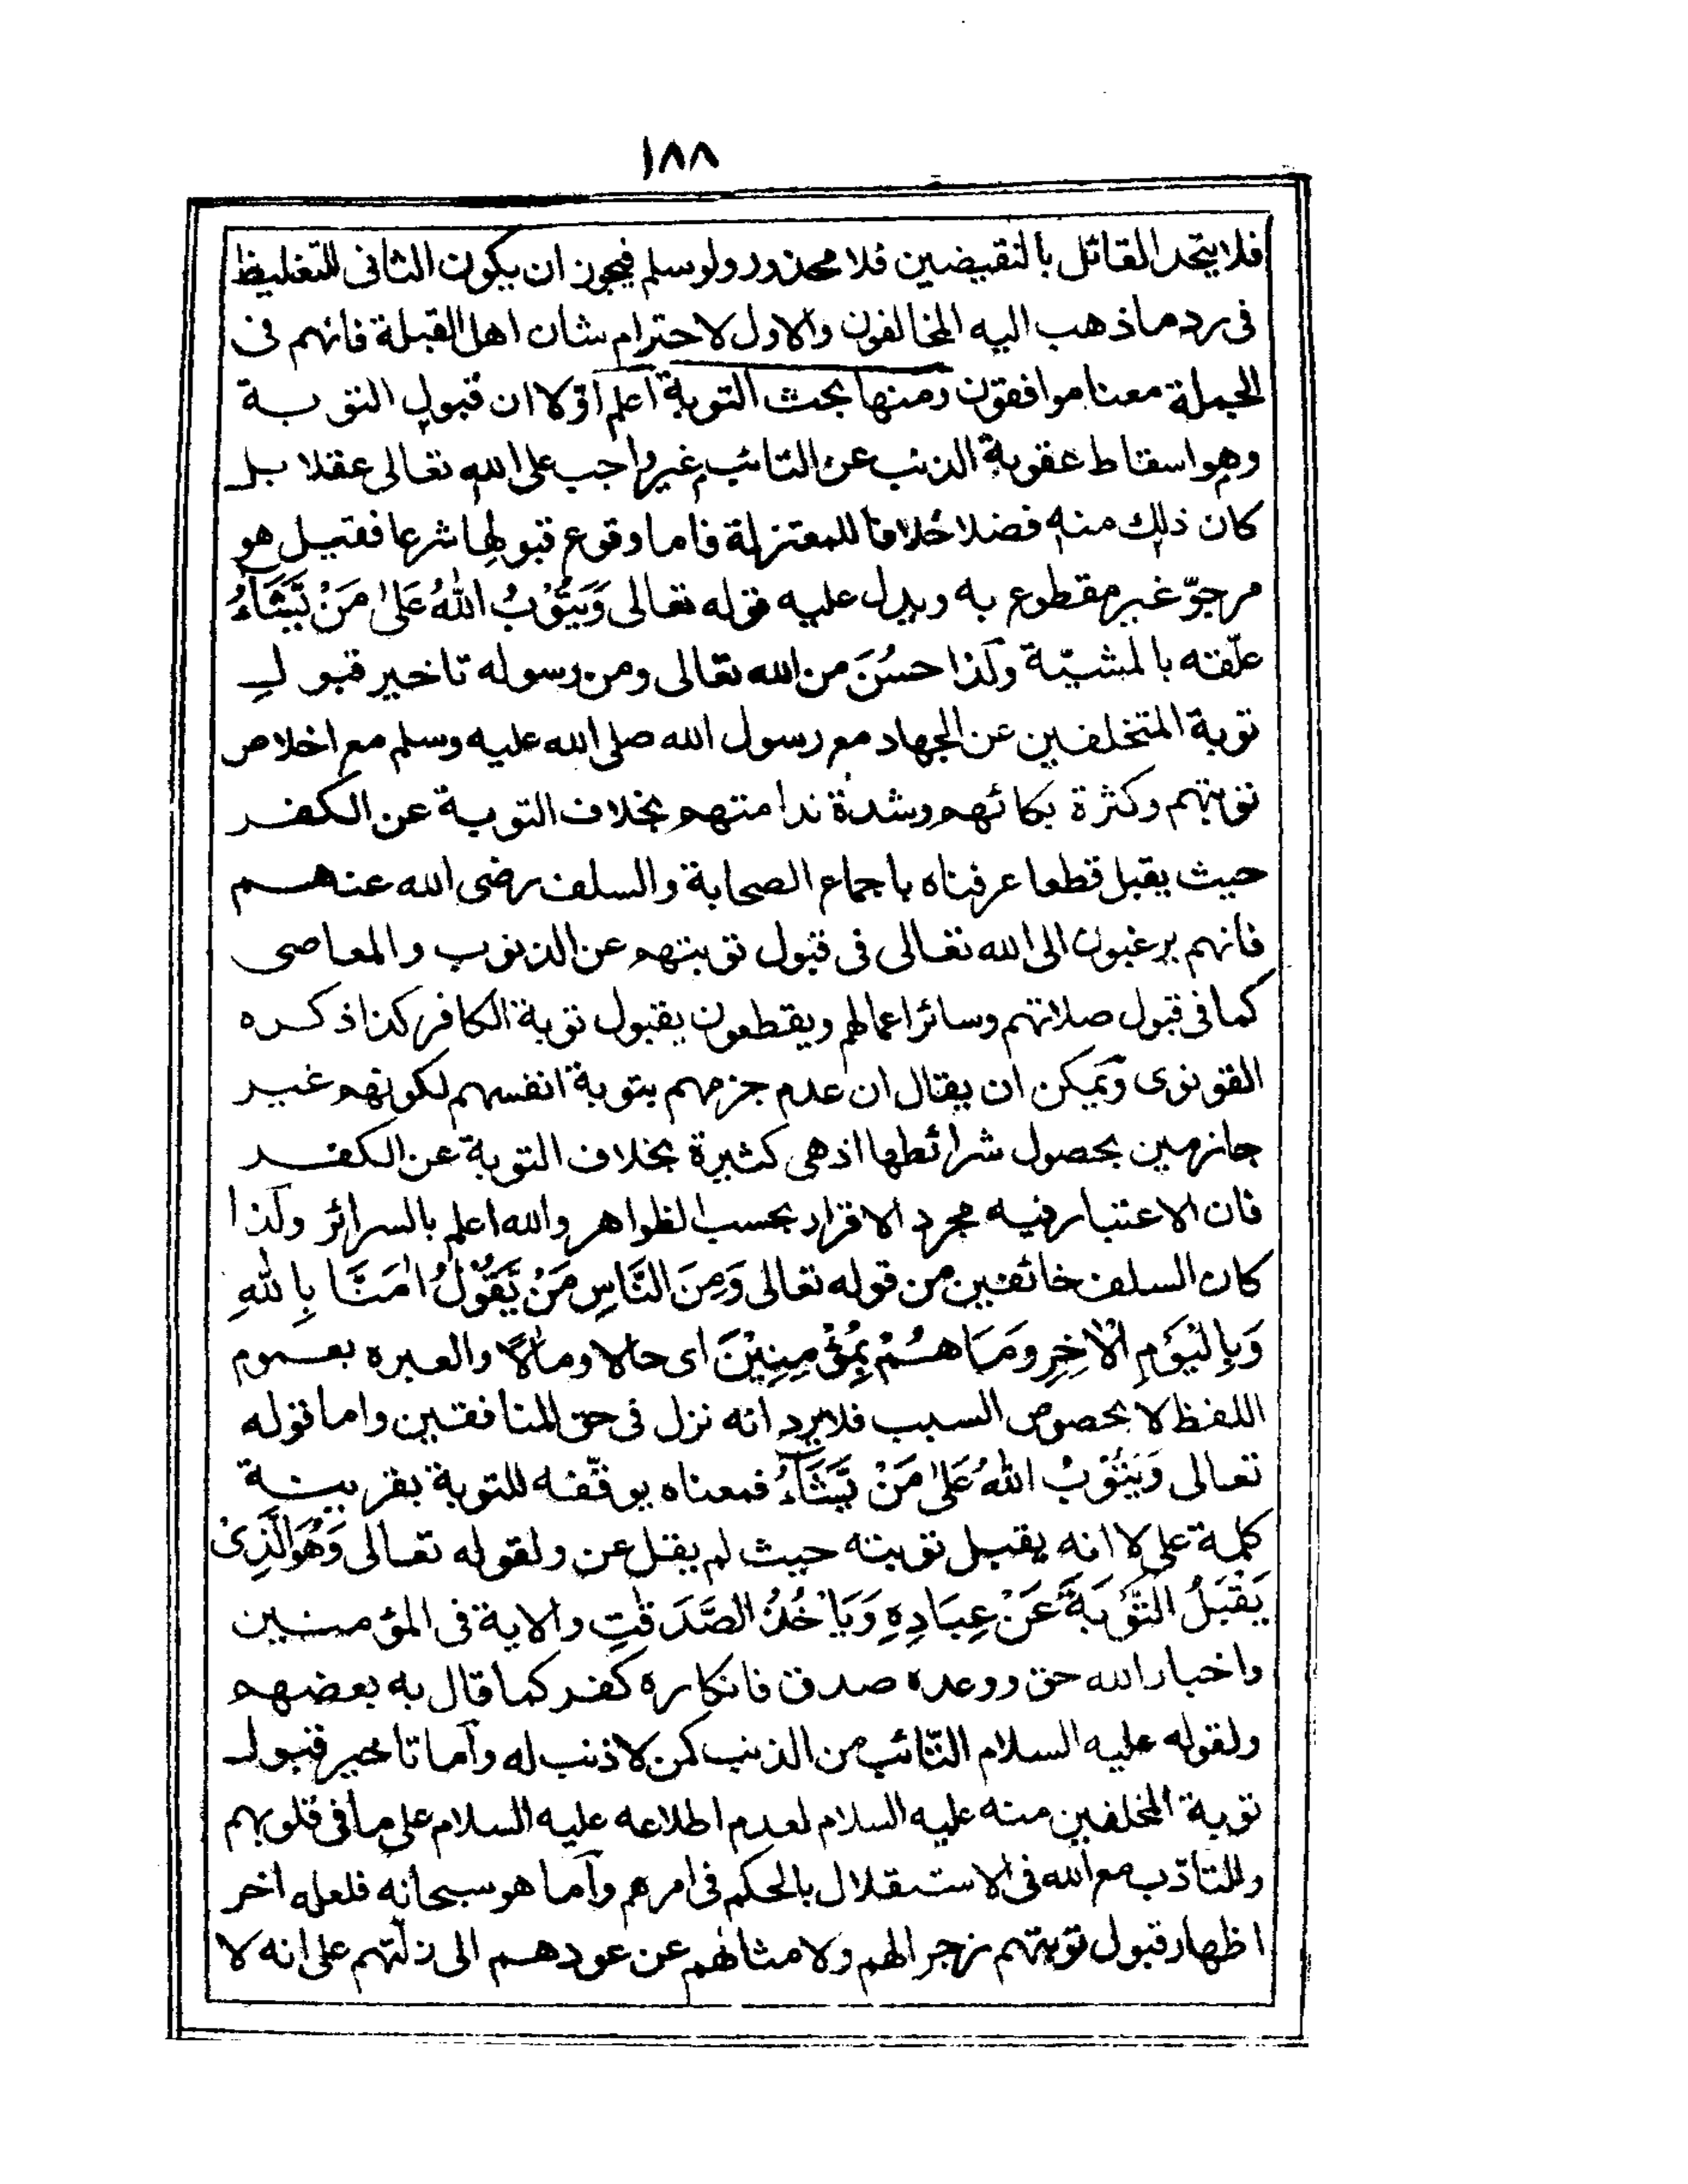 ١٨٨
فلا يتحد القائل بالنقيضين فلا محذور ولو سلم فيجوز ان يكون الثانى للتغليظ
فى رد ما ذهب اليه المخالفون والاول لاحترام شان اهل القبلة فانهم فى
الجملة معنا موافقون ومنها بحث التوبة اعلم اوّلا ان قبول التوبة
وهو اسقاط عقوبة الذنب عن التائب غير واجب على الله تعالى عقلا بل
كان ذلك منه فضلا خلافا للمعتزلة فاما وقوع قبولها شرعا فقيل هو
مرجوّ غير مقطوع به ويدل عليه قوله تعالى وَيَتُوْبُ اللّٰهُ عَلٰى مَنْ يَّشَآءُ
علّقته بالمشيّة ولذا حسُنَ من الله تعالى ومن رسوله تاخير قبول
توبة المتخلفين عن الجهاد مع رسول الله صلى الله عليه وسلم مع اخلاص
توبتهم وكثرة بكائهم وشدة ندامتهم بخلاف التوبة عن الكفر
حيث يقبل قطعا عرفناه باجماع الصحابة والسلف رضى الله عنهم
فانهم يرغبون الى الله تعالى فى قبول توبتهم عن الذنوب والمعاصى
كما فى قبول صلاتهم وسائر اعمالهم ويقطعون بقبول توبة الكافر كذا ذكره
القونوى ويمكن ان يقال ان عدم جزمهم بتوبة انفسهم لكونهم غير
جازمين بحصول شرائطها اذ هى كثيرة بخلاف التوبة عن الكفر
فان الاعتبار فيه مجرد الاقرار بحسب الظواهر والله اعلم بالسرائر ولذا
كان السلف خائفين من قوله تعالى وَمِنَ النَّاسِ مَنْ يَّقُوْلُ اٰمَنَّا بِاللّٰهِ
وَبِالْيَوْمِ الْاٰخِرِ وَمَا هُمْ بِمُؤْمِنِيْنَ اى حالا ومآلًا والعبره بعموم
اللفظ لا بخصوص السبب فلا يرد انه نزل فى حق المنافقين واما قوله
تعالى وَيَتُوْبُ اللّٰهُ عَلٰى مَنْ يَّشَآءُ فمعناه يوفّقه للتوبة بقرينة
كلمة على لا انه يقبل توبته حيث لم يقل عن ولقوله تعالى وَهُوَ الَّذِىْ
يَقْبَلُ التَّوْبَةَ عَنْ عِبَادِهٖ وَيَاْخُذُ الصَّدَقٰتِ والاية فى المؤمنين
واخبار الله حق ووعده صدق فانكاره كفر كما قال به بعضهم
ولقوله عليه السلام التّائب من الذنب كمن لا ذنب له وآما تاخير قبول
توبة المخلفين منه عليه السلام لعدم اطلاعه عليه السلام على ما فى قلوبهم
وللتادّب مع الله فى الاستقلال بالحكم فى امرهم وآما هو سبحانه فلعله اخر
اظهار قبول توبتهم زجرا لهم ولامثالهم عن عودهم الى زلّتهم على انه لا